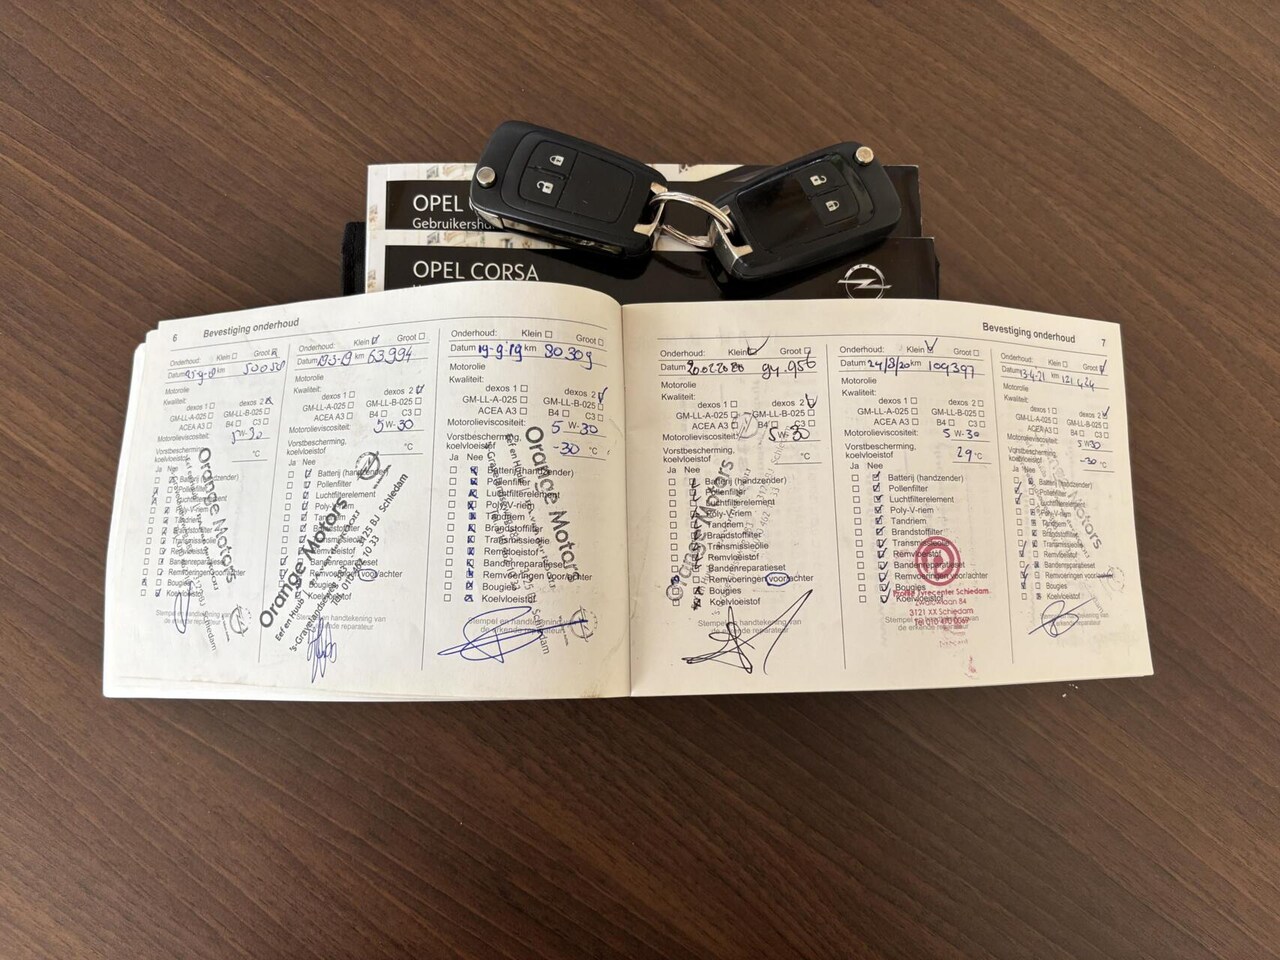 OPEL
Gebruikersha
OPEL CORSA
6
Bevestiging onderhoud
Onderhoud: Klein Groot
Datum km 50050
Motorolie
Kwaliteit:
dexos 1 dexos 2
GM-LL-A-025 GM-LL-B-025
ACEA A3 B4 C3
Motorolieviscositeit:
5W-30
Vorstbescherming,
koelvloeistof °C
Ja Nee
Batterij (handzender)
Pollenfilter
Luchtfilterelement
Poly-V-riem
Tandriem
Brandstoffilter
Transmissieolie
Remvloeistof
Bandenreparatieset
Remvoeringen voor/achter
Bougies
Koelvloeistof
Stempel en handtekening van
Orange Motors
Schiedam
Onderhoud: Klein Groot
Datum 19-3-19 km 63994
Motorolie
Kwaliteit:
dexos 1 dexos 2
GM-LL-A-025 GM-LL-B-025
ACEA A3 B4 C3
Motorolieviscositeit: 5 W-30
Vorstbescherming,
koelvloeistof °C
Ja Nee
Batterij (handzender)
Pollenfilter
Luchtfilterelement
Poly-V-riem
Tandriem
Brandstoffilter
Transmissieolie
Remvloeistof
Bandenreparatieset
Remvoeringen voor/achter
Bougies
Koelvloeistof
Stempel en handtekening van
de erkende reparateur
Orange Motors
3125 BJ Schiedam
Onderhoud: Klein Groot
Datum 19-9-19 km 80309
Motorolie
Kwaliteit:
dexos 1 dexos 2
GM-LL-A-025 GM-LL-B-025
ACEA A3 B4 C3
Motorolieviscositeit: 5 W-30
Vorstbescherming,
koelvloeistof -30 °C
Ja Nee
Batterij (handzender)
Pollenfilter
Luchtfilterelement
Poly-V-riem
Tandriem
Brandstoffilter
Transmissieolie
Remvloeistof
Bandenreparatieset
Remvoeringen voor/achter
Bougies
Koelvloeistof
Stempel en handtekening van
de erkende reparateur
Orange Motors
Schiedam
Bevestiging onderhoud
7
Onderhoud: Klein Groot
Datum km 94.956
Motorolie
Kwaliteit:
dexos 1 dexos 2
GM-LL-A-025 GM-LL-B-025
ACEA A3 B4 C3
Motorolieviscositeit: 5 W-30
Vorstbescherming,
koelvloeistof °C
Ja Nee
Batterij (handzender)
Pollenfilter
Luchtfilterelement
Poly-V-riem
Tandriem
Brandstoffilter
Transmissieolie
Remvloeistof
Bandenreparatieset
Remvoeringen voor/achter
Bougies
Koelvloeistof
Stempel en handtekening van
de erkende reparateur
Orange Motors
Onderhoud: Klein Groot
Datum 24/8/20 km 109397
Motorolie
Kwaliteit:
dexos 1 dexos 2
GM-LL-A-025 GM-LL-B-025
ACEA A3 B4 C3
Motorolieviscositeit: 5 W-30
Vorstbescherming,
koelvloeistof 29 °C
Ja Nee
Batterij (handzender)
Pollenfilter
Luchtfilterelement
Poly-V-riem
Tandriem
Brandstoffilter
Transmissieolie
Remvloeistof
Bandenreparatieset
Remvoeringen voor/achter
Bougies
Koelvloeistof
Stempel en handtekening van
de erkende reparateur
Tyrecenter Schiedam
84
3121 XX Schiedam
Tel 010-4700067
Onderhoud: Klein Groot
Datum 13-4-21 km 121.424
Motorolie
Kwaliteit:
dexos 1 dexos 2
GM-LL-A-025 GM-LL-B-025
ACEA A3 B4 C3
Motorolieviscositeit:
5 W30
Vorstbescherming,
koelvloeistof -30 °C
Ja Nee
Batterij (handzender)
Pollenfilter
Luchtfilterelement
Poly-V-riem
Tandriem
Brandstoffilter
Transmissieolie
Remvloeistof
Bandenreparatieset
Remvoeringen voor/achter
Bougies
Koelvloeistof
Stempel en handtekening van
de erkende reparateur